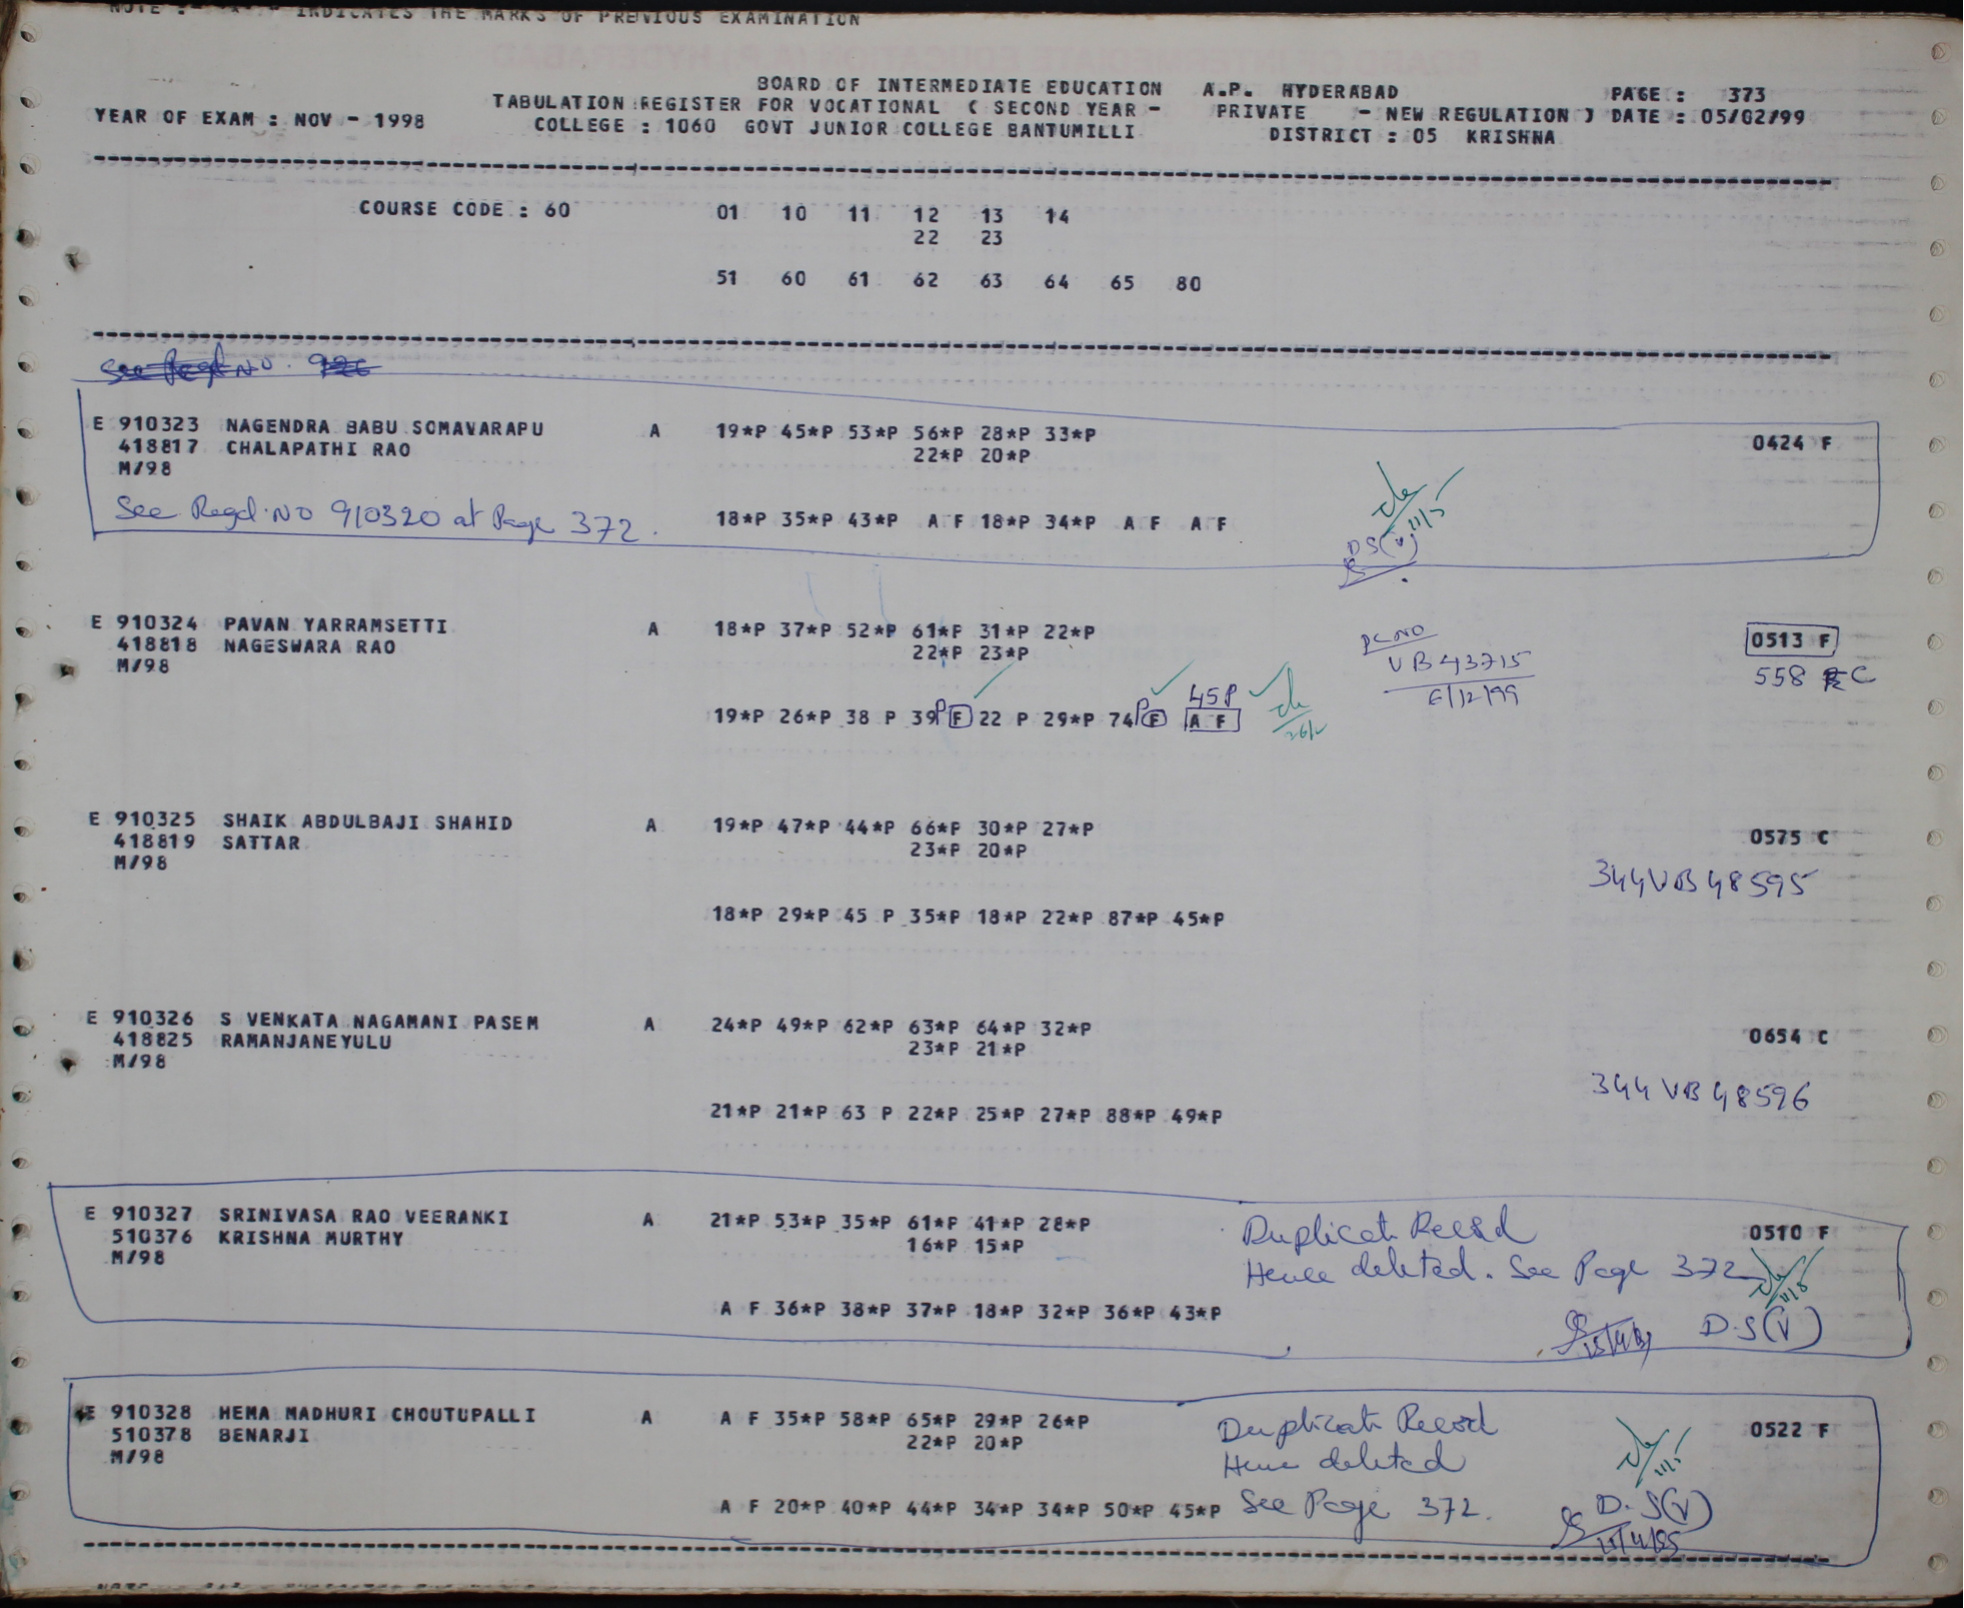 NOTE :- * - INDICATES THE MARKS OF PREVIOUS EXAMINATION
BOARD OF INTERMEDIATE EDUCATION A.P. HYDERABAD PAGE : 373
YEAR OF EXAM : NOV - 1998 TABULATION REGISTER FOR VOCATIONAL ( SECOND YEAR - PRIVATE - NEW REGULATION ) DATE : 05/02/99
COLLEGE : 1060 GOVT JUNIOR COLLEGE BANTUMILLI DISTRICT : 05 KRISHNA
COURSE CODE : 60 01 10 11 12 13 14
22 23
51 60 61 62 63 64 65 80
See Regd No.
E 910323 NAGENDRA BABU SOMAVARAPU A 19*P 45*P 53*P 56*P 28*P 33*P 0424 F
418817 CHALAPATHI RAO 22*P 20*P
M/98
See Regd. No 910320 at Page 372. 18*P 35*P 43*P A F 18*P 34*P A F A F
DS(V)
E 910324 PAVAN YARRAMSETTI A 18*P 37*P 52*P 61*P 31*P 22*P 0513 F
418818 NAGESWARA RAO 22*P 23*P VB 43715 558 C
M/98 6/12/99
45P
19*P 26*P 38 P 39P F 22 P 29*P 74P F A F
E 910325 SHAIK ABDULBAJI SHAHID A 19*P 47*P 44*P 66*P 30*P 27*P 0575 C
418819 SATTAR 23*P 20*P
M/98 344 VB 48595
18*P 29*P 45 P 35*P 18*P 22*P 87*P 45*P
E 910326 S VENKATA NAGAMANI PASEM A 24*P 49*P 62*P 63*P 64*P 32*P 0654 C
418825 RAMANJANEYULU 23*P 21*P
M/98 344 VB 48596
21*P 21*P 63 P 22*P 25*P 27*P 88*P 49*P
E 910327 SRINIVASA RAO VEERANKI A 21*P 53*P 35*P 61*P 41*P 28*P Duplicate Record 0510 F
510376 KRISHNA MURTHY 16*P 15*P
M/98 Hence deleted. See Page 372
A F 36*P 38*P 37*P 18*P 32*P 36*P 43*P D.S(V)
E 910328 HEMA MADHURI CHOUTUPALLI A A F 35*P 58*P 65*P 29*P 26*P Duplicate Record 0522 F
510378 BENARJI 22*P 20*P
M/98 Hence deleted
A F 20*P 40*P 44*P 34*P 34*P 50*P 45*P See Page 372. D.S(V)